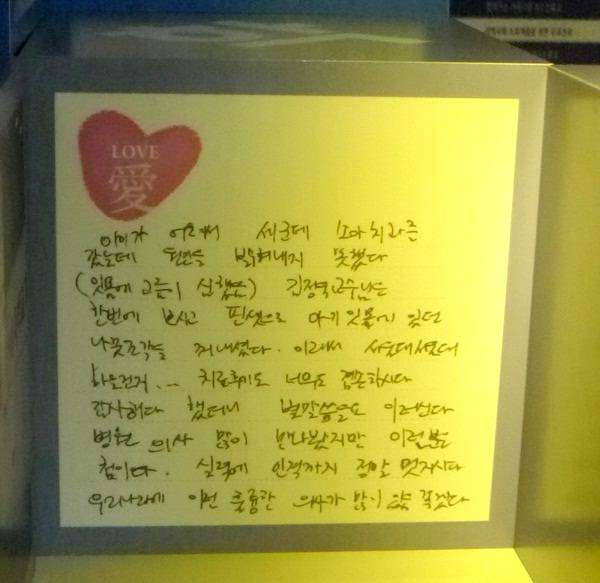 LOVE
愛
아이가 어려서 세군데 소아치과를
갔는데 원인을 밝혀내지 못했다
(잇몸에 고름이 심했음) 김정욱교수님은
한번에 보시고 핀셋으로 아기 잇몸에 있던
나뭇조각을 꺼내셨다. 이래서 서울대서울대
하는건가... 치료후에도 너무도 겸손하시다
감사하다 했더니 별말씀을요 이러신다
병원 의사 많이 만나봤지만 이런분은
첨이다. 실력에 인격까지 정말 멋지시다
우리나라에 이런 훌륭한 의사가 많이 좋겠다